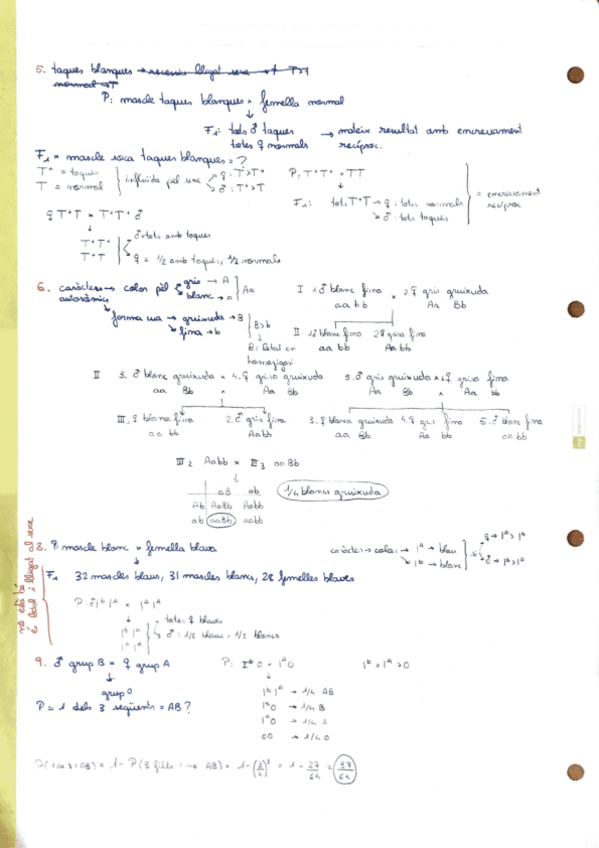 5. taques blanques → recessiu lligat sexe → T>t
normal → T
P: mascle taques blanques × femella normal
F₁: tots ♂ taques → mateix resultat amb encreuament
totes ♀ normals recíproc.
F₁ × mascle soca taques blanques = ?
T* = taques influïda pel sexe ♀: T>T* P: T*T* × TT
T = normal ♂: T*>T
F₁: tots T*T → ♀: totes normals = encreuament
♂: tots taques recíproc
♀ T*T × T*T* ♂
T*T* ♂: tots amb taques
T*T ♀ = 1/2 amb taques, 1/2 normals
6. caràcters → color pèl gris → A Aa
autosòmics blanc → a
I 1.♂ blanc fina × 2.♀ gris gruixuda
aa bb Aa Bb
forma cua → gruixuda → B B>b
fina → b
II 1.♂ blanc fina 2.♂ gris fina
aa bb Aa bb
B: letal en
homozigosi
II 3. ♂ blanc gruixuda × 4.♀ grisa gruixuda 5.♂ gris gruixuda × 6.♀ grisa fina
aa Bb × Aa Bb Aa Bb × Aa bb
III 1.♀ blanca fina 2.♂ gris fina 3.♀ blanca gruixuda 4.♀ gris fina 5.♂ blanc fina
aa bb Aa bb aa Bb Aa bb aa bb
III 2 Aabb × III 3 aaBb
aB ab 1/4 blancs gruixuda
Ab AaBb Aabb
ab aaBb aabb
8. P mascle blanc × femella blava
caràcter → color → Iᵃ → blau ♀ → Iᵃ>Iᵇ
Iᵇ → blanc ♂ → Iᵇ>Iᵃ
F₁ 32 mascles blaus, 31 mascles blancs, 28 femelles blaves
no està bé
é letal i lligat al sexe
P ♂ Iᵇ Iᵃ × Iᵃ Iᵃ
Iᵇ Iᵃ totes ♀ blaves
Iᵃ Iᵃ ♂: 1/2 blaus, 1/2 blancs
9. ♂ grup B × ♀ grup A P: Iᵇ0 × Iᴬ0 Iᵇ = Iᴬ > 0
grup 0
Iᵇ Iᴬ → 1/4 AB
P = 1 dels 3 següents = AB?
Iᵇ0 → 1/4 B
Iᴬ0 → 1/4 A
00 → 1/4 0
P(1 de 3 = AB) = 1 − P(3 fills = no AB) = 1 − (3/4)³ = 1 − 27/64 = 37/64